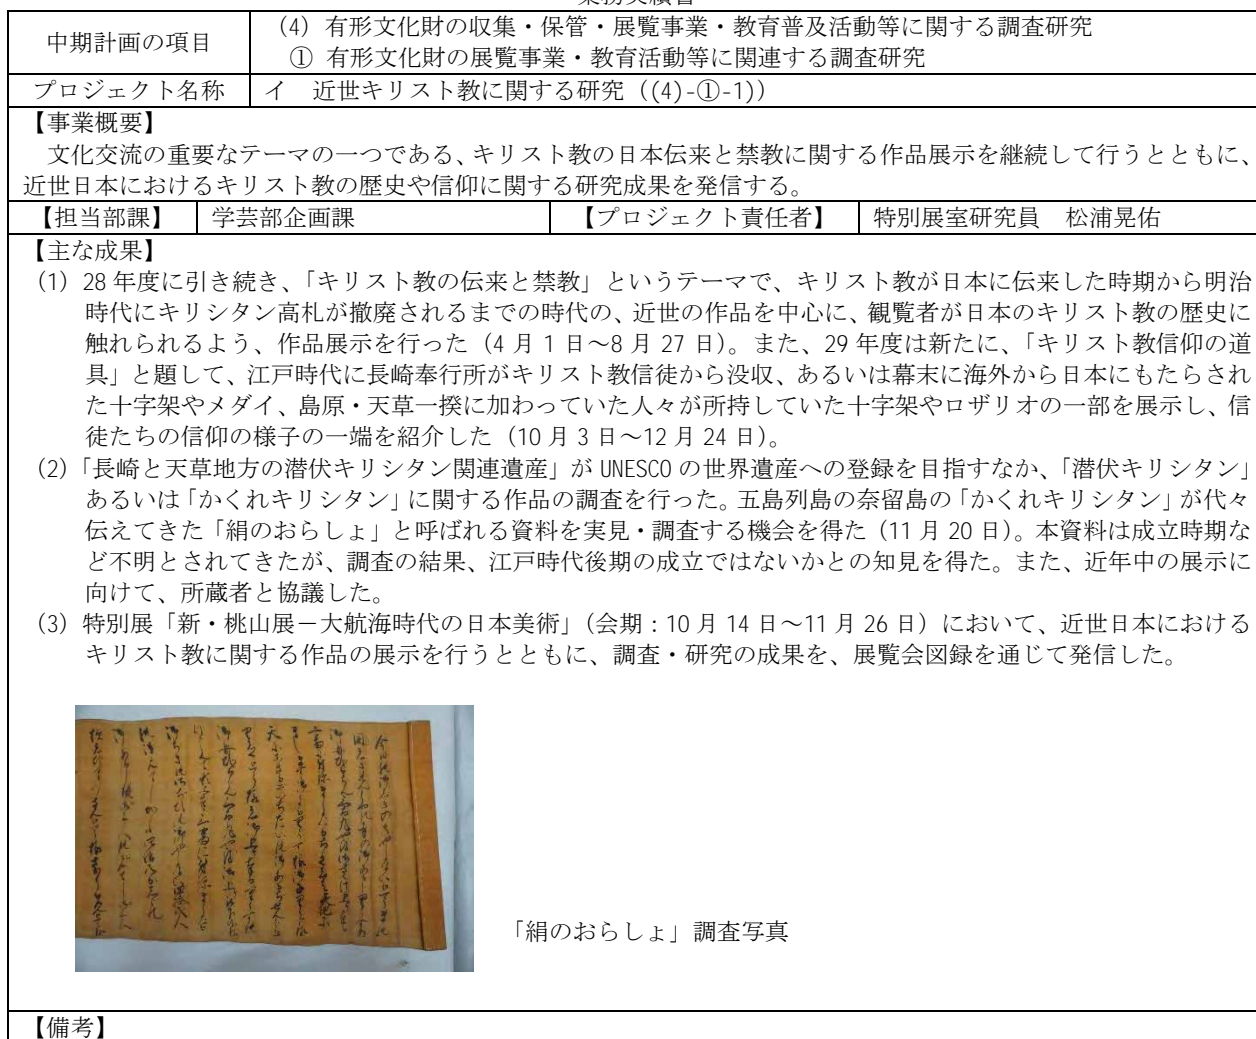 中期計画の項目
(4) 有形文化財の収集・保管・展覧事業・教育普及活動等に関する調査研究
① 有形文化財の展覧事業・教育活動等に関連する調査研究
プロジェクト名称
イ 近世キリスト教に関する研究((4)-①-1))
【事業概要】
文化交流の重要なテーマの一つである、キリスト教の日本伝来と禁教に関する作品展示を継続して行うとともに、
近世日本におけるキリスト教の歴史や信仰に関する研究成果を発信する。
【担当部課】 学芸部企画課 【プロジェクト責任者】 特別展室研究員 松浦晃佑
【主な成果】
(1) 28 年度に引き続き、「キリスト教の伝来と禁教」というテーマで、キリスト教が日本に伝来した時期から明治
時代にキリシタン高札が撤廃されるまでの時代の、近世の作品を中心に、観覧者が日本のキリスト教の歴史に
触れられるよう、作品展示を行った(4 月 1 日~8 月 27 日)。また、29 年度は新たに、「キリスト教信仰の道
具」と題して、江戸時代に長崎奉行所がキリスト教信徒から没収、あるいは幕末に海外から日本にもたらされ
た十字架やメダイ、島原・天草一揆に加わっていた人々が所持していた十字架やロザリオの一部を展示し、信
徒たちの信仰の様子の一端を紹介した(10 月 3 日~12 月 24 日)。
(2)「長崎と天草地方の潜伏キリシタン関連遺産」が UNESCO の世界遺産への登録を目指すなか、「潜伏キリシタン」
あるいは「かくれキリシタン」に関する作品の調査を行った。五島列島の奈留島の「かくれキリシタン」が代々
伝えてきた「絹のおらしょ」と呼ばれる資料を実見・調査する機会を得た(11 月 20 日)。本資料は成立時期な
ど不明とされてきたが、調査の結果、江戸時代後期の成立ではないかとの知見を得た。また、近年中の展示に
向けて、所蔵者と協議した。
(3) 特別展「新・桃山展-大航海時代の日本美術」(会期:10 月 14 日~11 月 26 日)において、近世日本における
キリスト教に関する作品の展示を行うとともに、調査・研究の成果を、展覧会図録を通じて発信した。
「絹のおらしょ」調査写真
【備考】